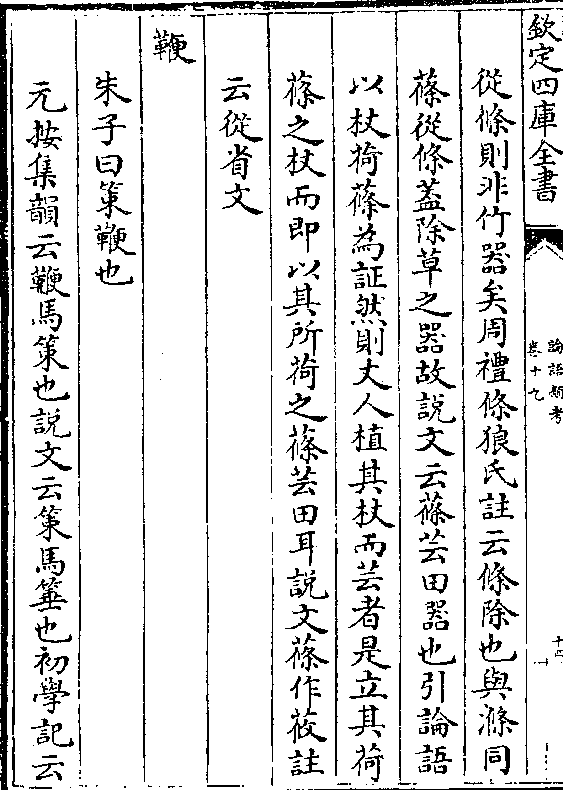 欽定四庫全書
論語類考
卷十九
十四
從條則非竹器矣周禮條狼氏註云條除也與滌同
蓧從條蓋除草之器故説文云蓧芸田器也引論語
以杖荷蓧為証然則丈人植其杖而芸者是立其荷
蓧之杖而即以其所荷之蓧芸田耳説文蓧作莜註
云從省文
鞭
朱子曰策鞭也
元按集韻云鞭馬策也説文云策馬箠也初學記云